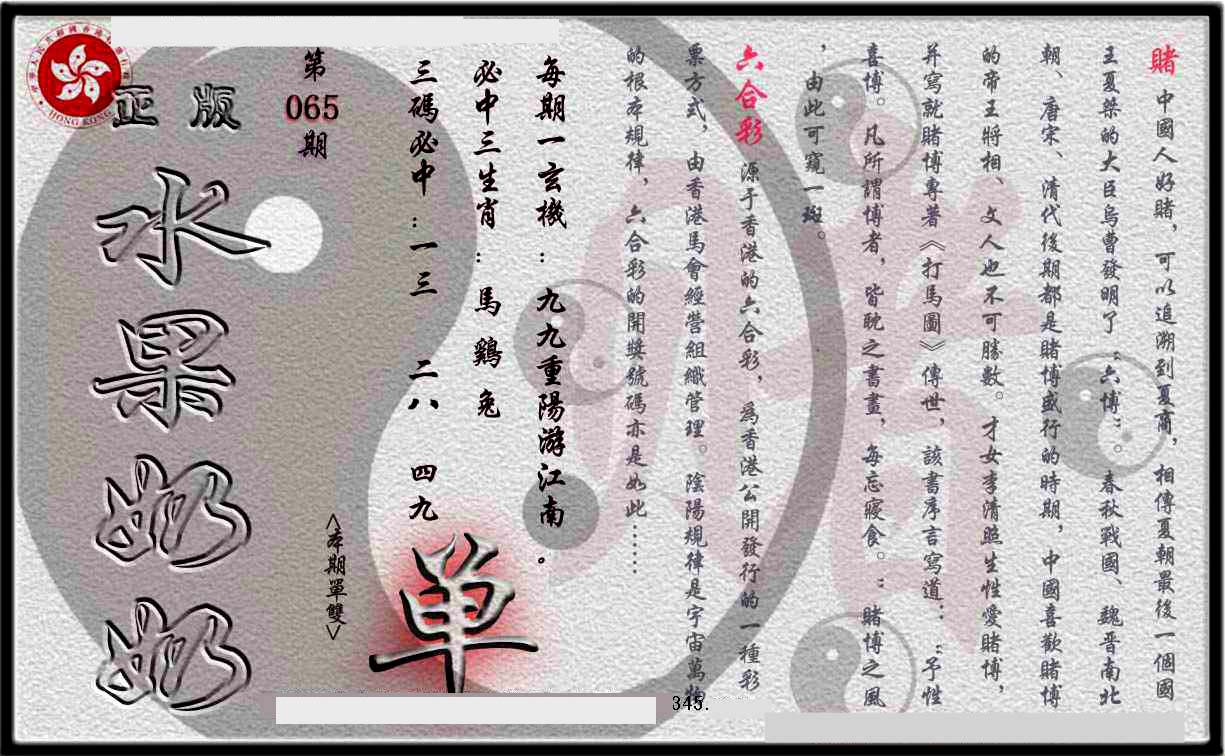 賭 中國人好賭，可以追溯到夏商，相傳夏朝最後一個國
王夏桀的大臣烏曹發明了“六博”。春秋戰國、魏晋南北
朝、唐宋、清代後期都是賭博盛行的時期，中國喜歡賭博
的帝王將相、文人也不可勝數。才女李清照生性愛賭博，
并寫就賭博專著《打馬圖》傳世，該書序言寫道：“予性
喜博。凡所謂博者，皆眈之書畫，每忘寢食。”賭博之風
，由此可窺一斑。
六合彩 源于香港的六合彩，為香港公開發行的一種彩
票方式，由香港馬會經營組織管理。陰陽規律是宇宙萬物
的根本規律，六合彩的開獎號碼亦是如此……
每期一玄機：九九重陽游江南。
必中三生肖：馬鷄兔
三碼必中：一三 二八 四九
<本期單雙>
单
第
065
期
正版
水果奶奶
HONG KONG
345.